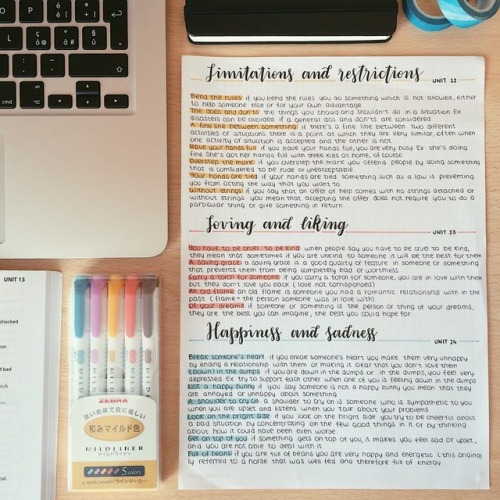 Limitations and restrictions
UNIT 12
Bend the rules if you bend the rules you do something which is not allowed, either
to help someone else or for your own advantage
The dos and don'ts the things you should and shouldn't do in a situation Ex
disasters can be avoided if a general dos and don'ts are considered
A fine line between something if there's a fine line between two different
activities or situations there is a point at which they are very similar, often when
one activity or situation is accepted and the other is not
Have your hands full if you have your hands full, you are very busy Ex she's doing
fine She's got her hands full with three kids at home, of course
Overstep the mark if you overstep the mark you offend people by doing something
that is considered to be rude or unacceptable
Your hands are tied if your hands are tied something such as a law is preventing
you from acting the way that you want to
Without strings if you say that an offer of help comes with no strings attached or
without strings you mean that accepting the offer does not require you to do a
particular thing or give something in return
Loving and liking
UNIT 13
You have to be cruel to be kind when people say you have to be cruel to be kind,
they mean that sometimes if you are unkind to someone it will be the best for them
A saving grace a saving grace is a good quality or feature in someone or something
that prevents them from being completely bad or worthless
Carry a torch for someone if you carry a torch for someone, you are in love with them
but they don't love you back ( love not corresponded)
An old flame an old flame is someone you had a romantic relationship with in the
past ( flame = the person someone was in love with)
Of your dreams if someone or something is the person or thing of your dreams,
they are the best you can imagine, the best you could hope for
Happiness and sadness
UNIT 14
Break someone's heart if you break someone's heart you make them very unhappy
by ending a relationship with them or making it clear that you don't love them
(Down) in the dumps if you are down in the dumps or in the dumps, you feel very
depressed Ex try to support each other when one of you is feeling down in the dumps
Not a happy bunny if you say someone is not a happy bunny you mean that they
are annoyed or unhappy about something
A shoulder to cry on a shoulder to cry on is someone who is sympathetic to you
when you are upset and listens when you talk about your problems
Look on the bright side if you look on the bright side you try to be cheerful about
a bad situation by concentrating on the few good things in it or by thinking
about how it could have been even worse
Get on top of you if something gets on top of you, it makes you feel sad or upset,
and you are not able to deal with it
Full of beans if you are full of beans you are very happy and energetic ( this original
ly referred to a horse that was well fed and therefore full of energy
UNIT 13
ZEBRA
和みマイルド色
MILDLINER
マイルドライナー
5 colors
ラインマーカー